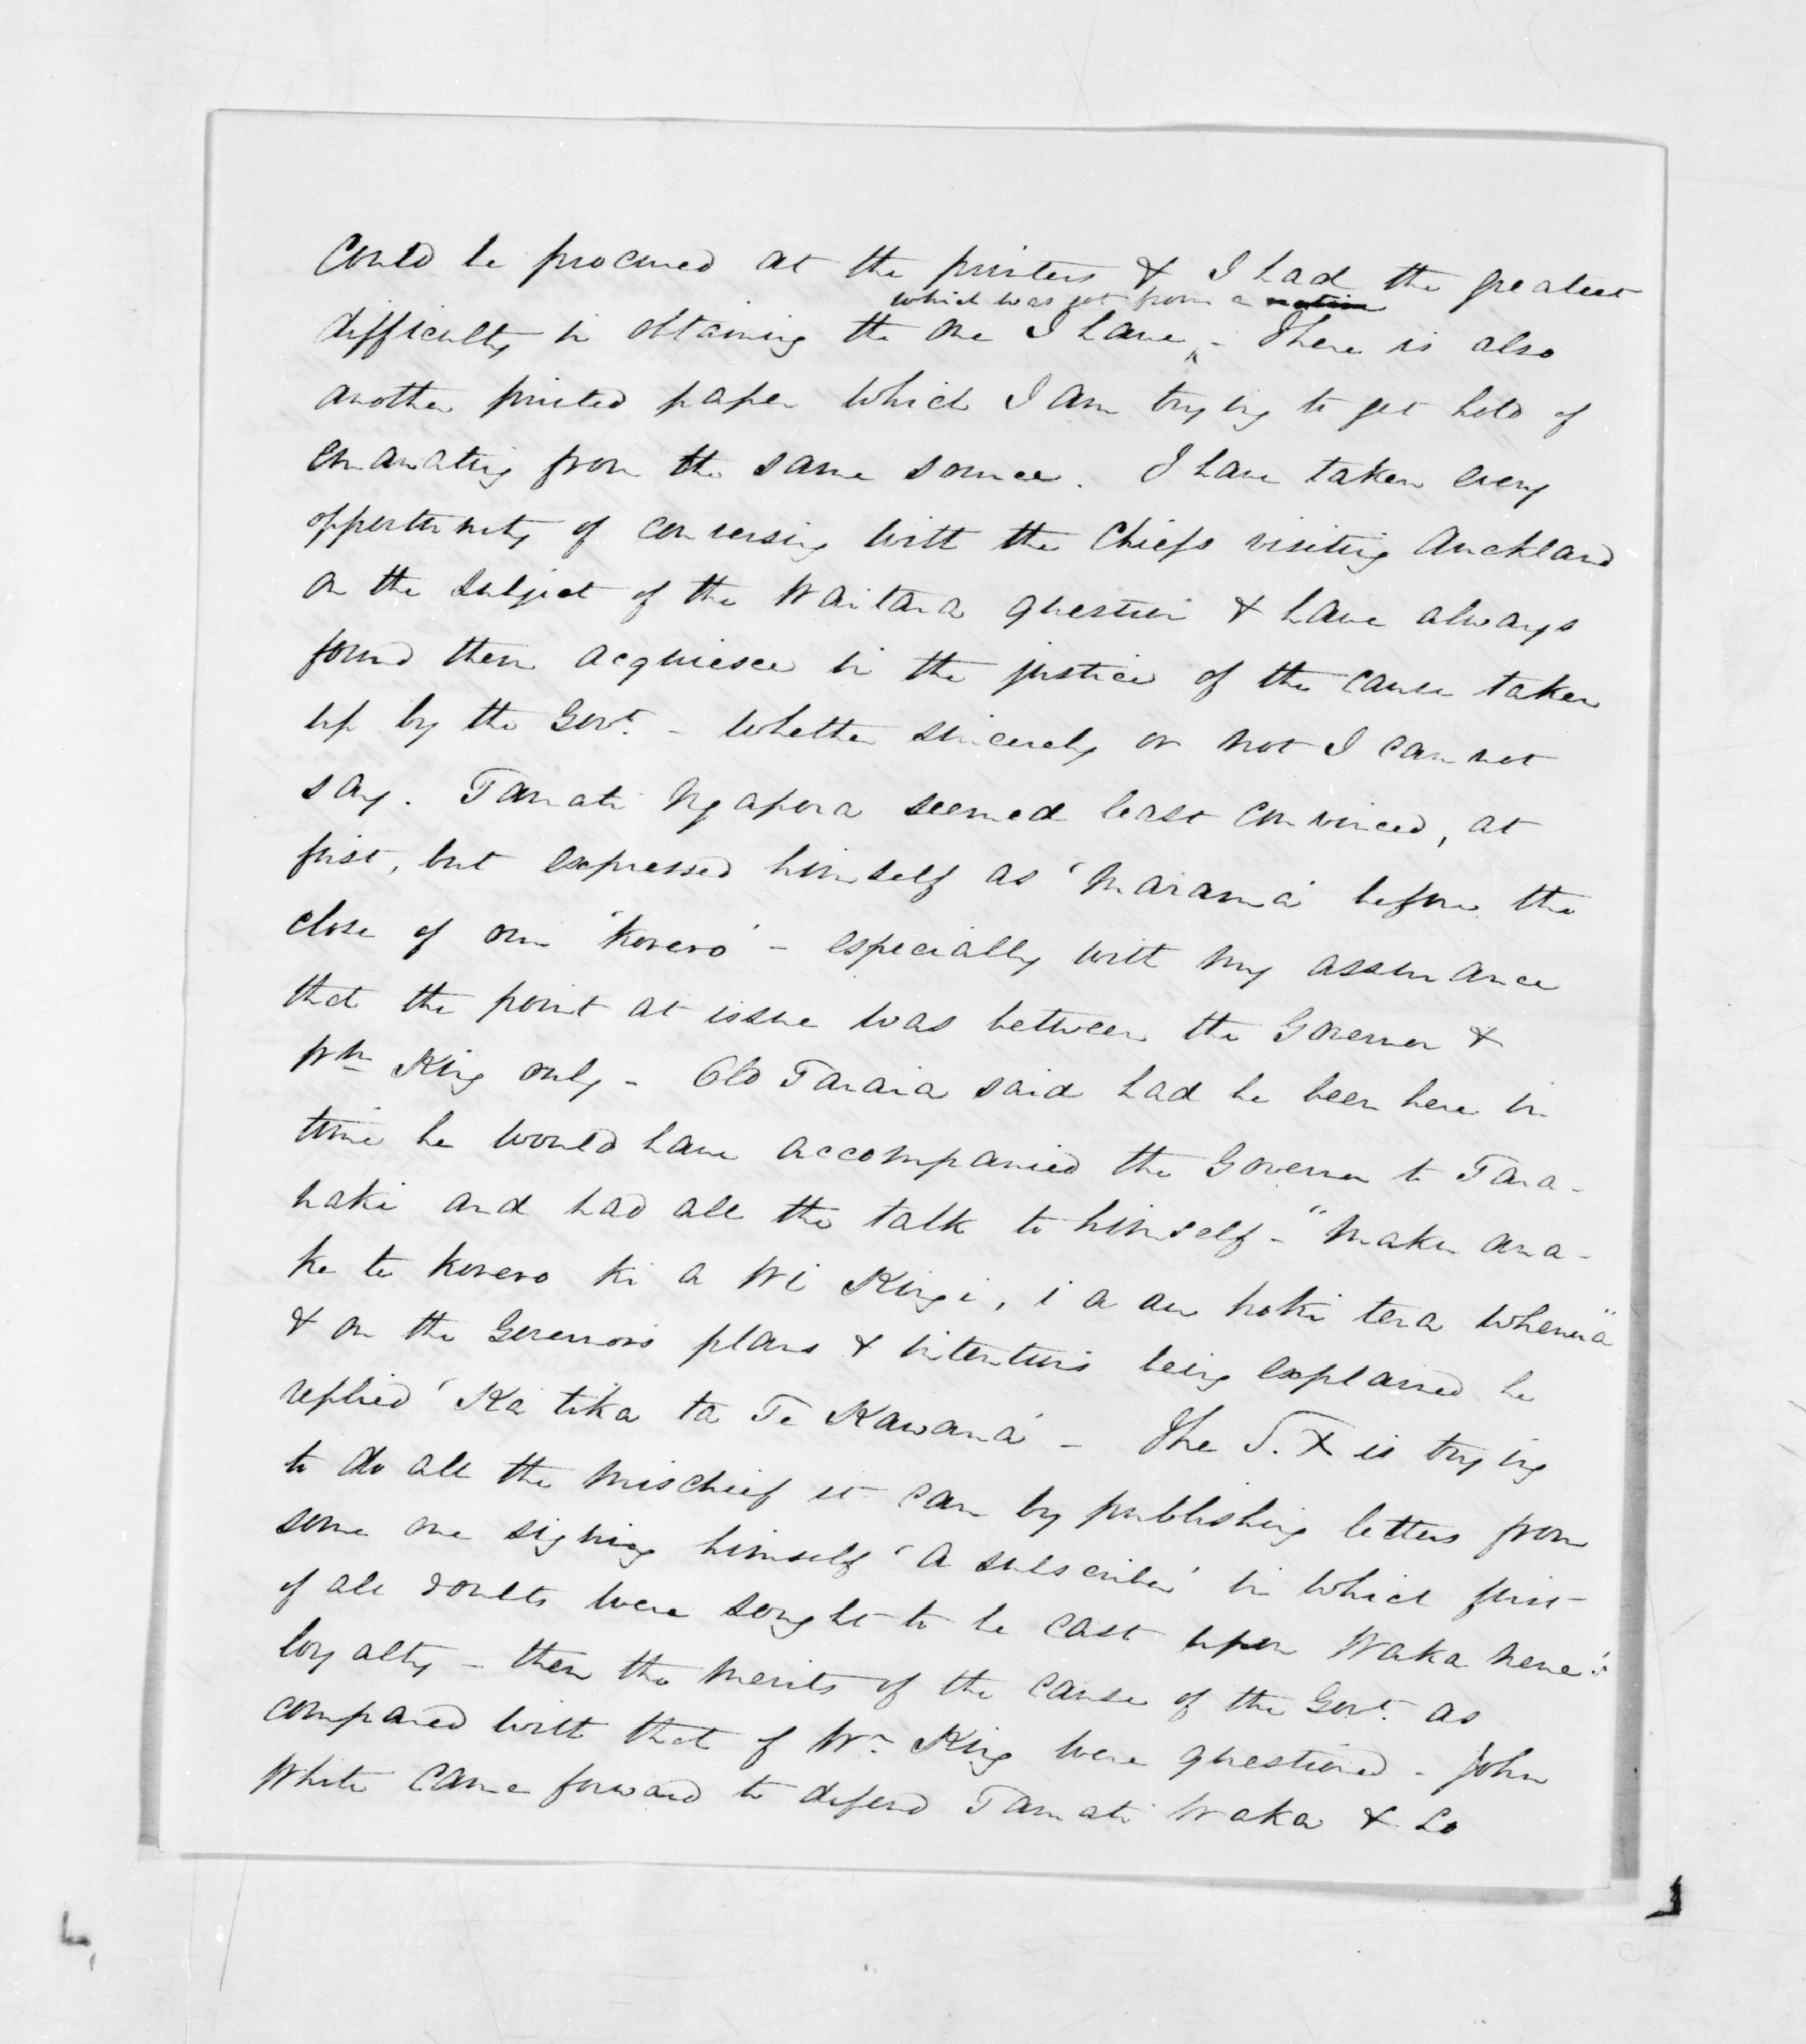 could be procured at the printers & I had the greatest
which was got from a native
difficulty in obtaining the one I have - There is also
another printed paper which I am trying to get hold of
emanating from the same source. I have taken every
opportunity of conversing with the Chiefs visiting Auckland
on the subject of the Waitara question & have always
found them acquiesce in the justice of the cause taken
up by the Govt. - whether sincerely or not I cannot
say. Tamati Ngapora seemed least convinced, at
first, but expressed himself as 'marama' before the
close of our 'korero' - especially with my assurance
that the point at issue was between the Governor &
Wm King only - Old Taraia said had he been here in
time he would have accompanied the Governor to Tara-
naki and had all the talk to himself - "Maku ana-
ke te korero ki a Wi Kingi, i a au hoki tena whenua"
& on the Governors plans & intentions being explained he
replied 'Ka tika ta Te Kawana' - The S. X is trying
to do all the mischief it can by publishing letters from
some one signing himself 'A subscriber' in which first
of all doubts were sought to be cast upon Waka Nene's
loyalty - then the merits of the cause of the Govt. as
compared with that of Wm King were questioned - John
White came forward to defend Tamati Waka & so